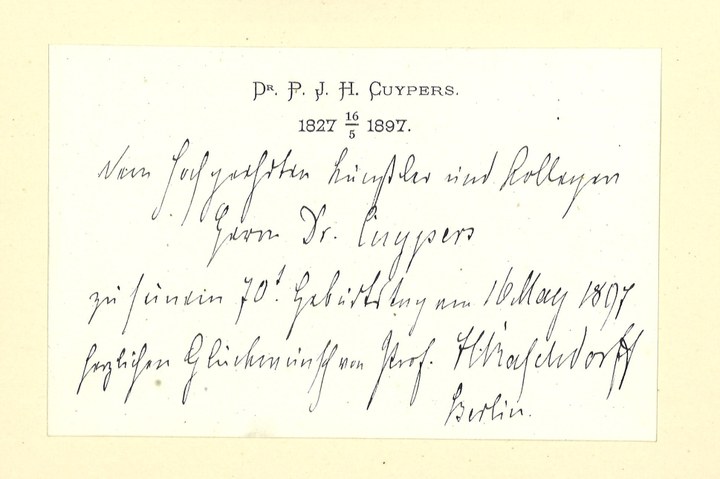 Dr. P. J. H. Cuypers.
1827 16/5 1897.
Dem hochgeehrten Künstler und Kollegen
Herrn Dr. Cuypers
zu seinem 70t. Geburtstag am 16 May 1897
herzlichen Glückwunsch von Prof. Raschdorff
Berlin.